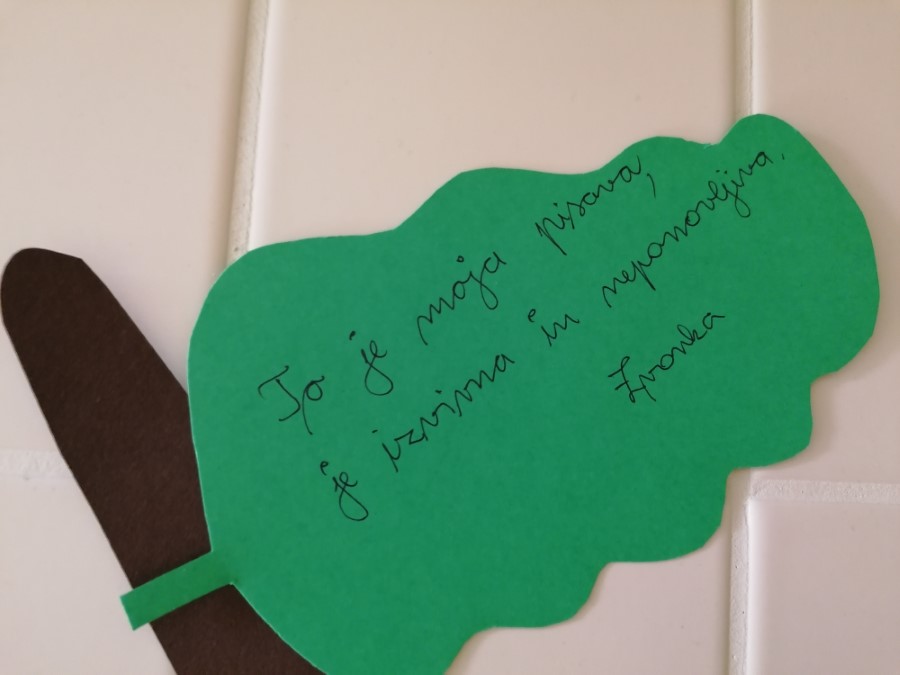 To je moja pisava,
je izvirna in neponovljiva.
Zvonka